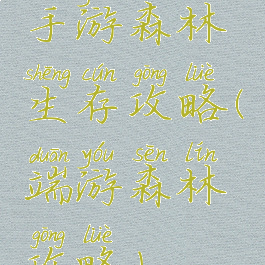 手游森林
shēng cún gōng lüè
生存攻略(
duān yóu sēn lín
端游森林
gōng lüè
攻略)